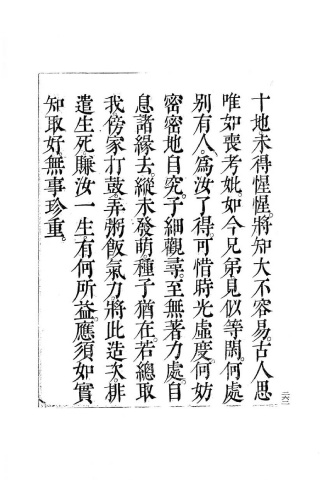 十地未得惺惺。將知大不容易。古人思
唯如喪考妣。如今兄弟見似等閑。何處
別有人。爲汝了得。可惜時光虛度。何妨
密密地自究。子細觀尋。至無著力處。自
息諸緣去。縱未發萌種子猶在。若總取
我傍家打鼓弄粥飯氣力。將此造次排
遣生死賺汝一生。有何所益。應須如實
知取好。無事珍重。
二六二